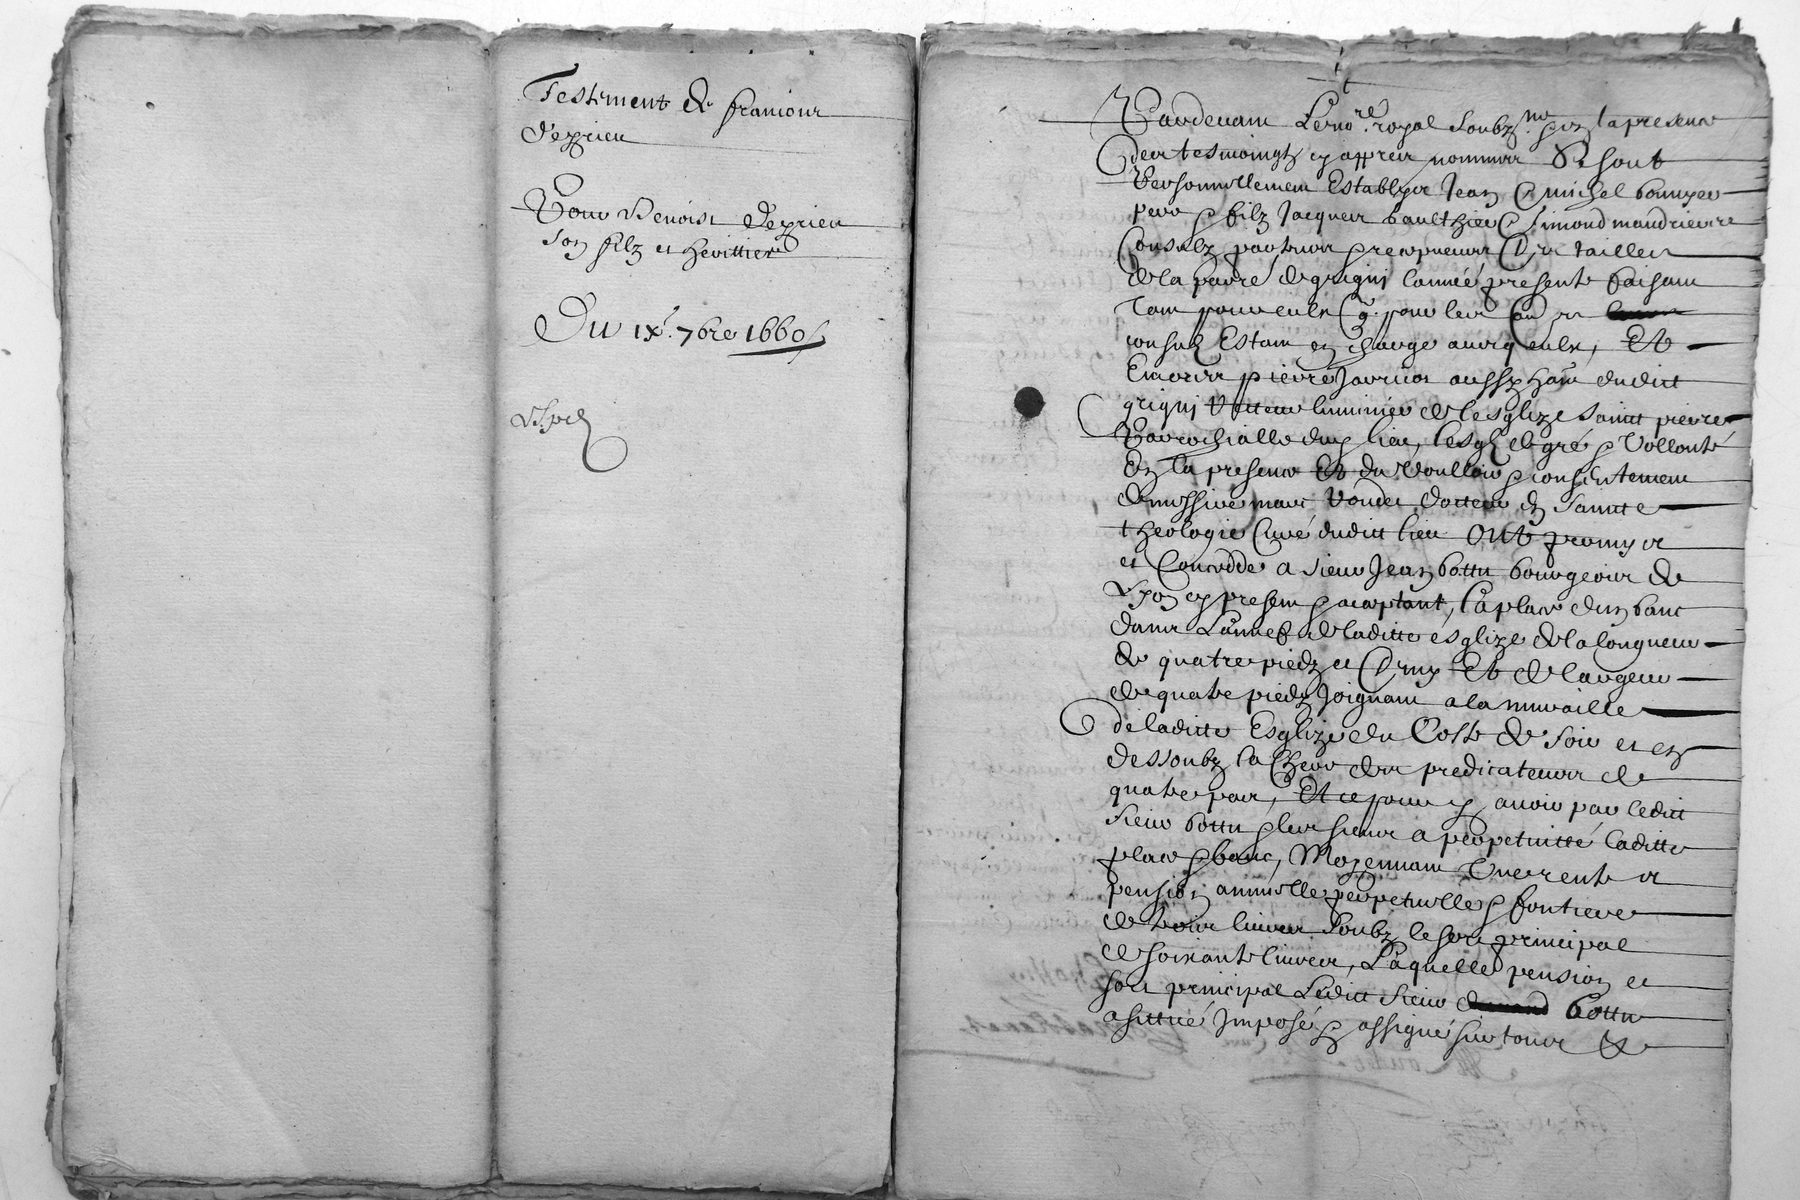 Testiment de francour
d'eyrieu
Pour Benoist d'eyrieu
son filz et herittier
Du ixe. 7bre 1660
Pardevant Le nore. royal soubzne. et en la presence
des tesmoingtz cy appres nommes Se sont
Personnellement Establys Jean & michel
pere & filz Jacques & simond mandrieure
Consulz parteurs & recepveurs des tailles
de la parre de grigni l'année presente faisant
Tant pour eulx q. pour les au es
consulz Estant en charge avecq eulx, Et
Encores pierre aussy hant dudict
grigni luminier de lesglize sainct pierre
Parrochialle dud lieu, lesqlz de gré & Vollonté
En la presence Et du Voulloir & consentement
de messire marc docteur en Saincte
theologie Curé dudict lieu Ont promis et
et Concedde a sieur Jean bottu bourgeois de
Lyon cy present & acceptant, la place dun banc
dans de laditte esglize de la longueur
de quatre piedz et demy Et de largeur
de quatre piedz Joignant a la muraille
de laditte Esglize du Costé de soir et en
dessoubz la Chere des predicateurs de
quatre pas, Et ce pour y avoir par ledict
sieur bottu & les siens a perpetuitté laditte
place & banc, Moyennant Une rente et
pension annuelle perpetuelle & fontiere
de trois livres soubz le sort principal
de soixante livres, Laquelle pension et
sort principal Ledict sieur bottu
a sittué Imposé & assigné sur tous &